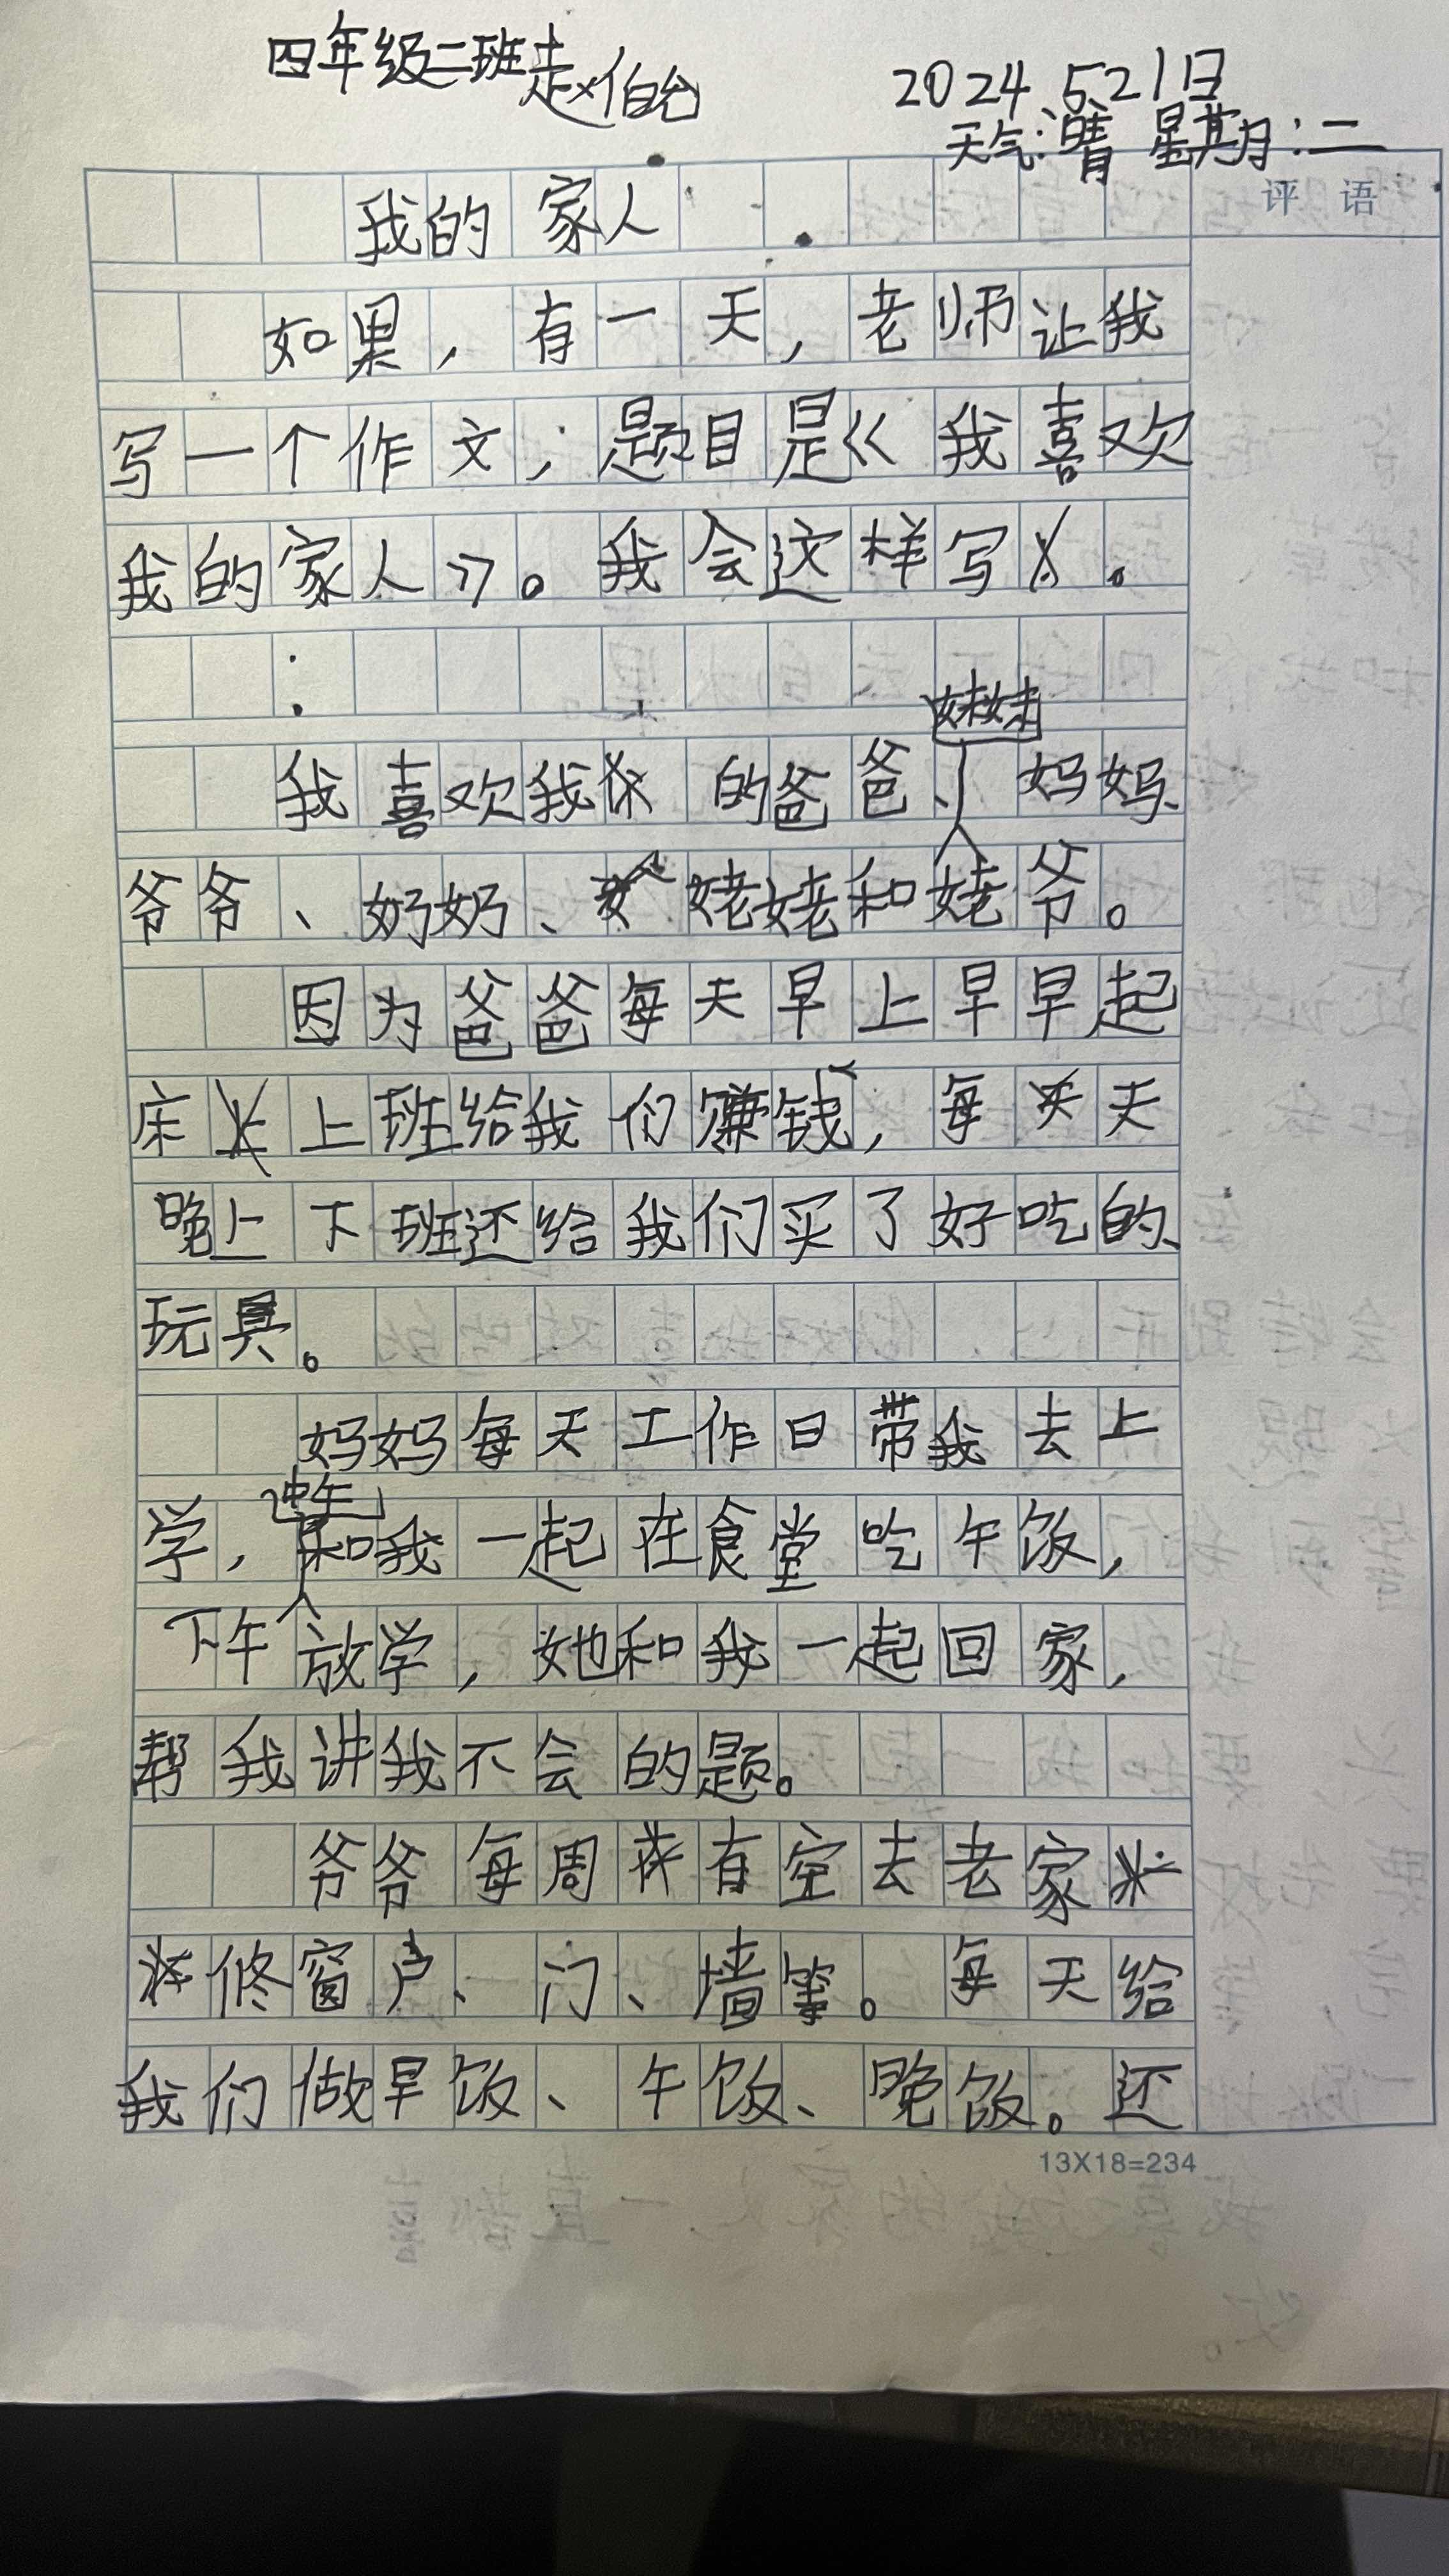 四年级二班赵伯允
2024.5.21日
天气:晴 星期:二
评语
我的家人
如果，有一天，老师让我
写一个作文；题目是《我喜欢
我的家人》。我会这样写。
:
妹妹
我喜欢我的爸爸、妈妈、
爷爷、奶奶、姥姥和姥爷。
因为爸爸每天早上早早起
床上班给我们赚钱，每天
晚上下班还给我们买了好吃的、
玩具。
妈妈每天工作日带我去上
中午
学，和我一起在食堂吃午饭，
下午放学，她和我一起回家，
帮我讲我不会的题。
爷爷每周有空去老家
修窗户、门、墙等。每天给
我们做早饭、午饭、晚饭。还
13X18=234